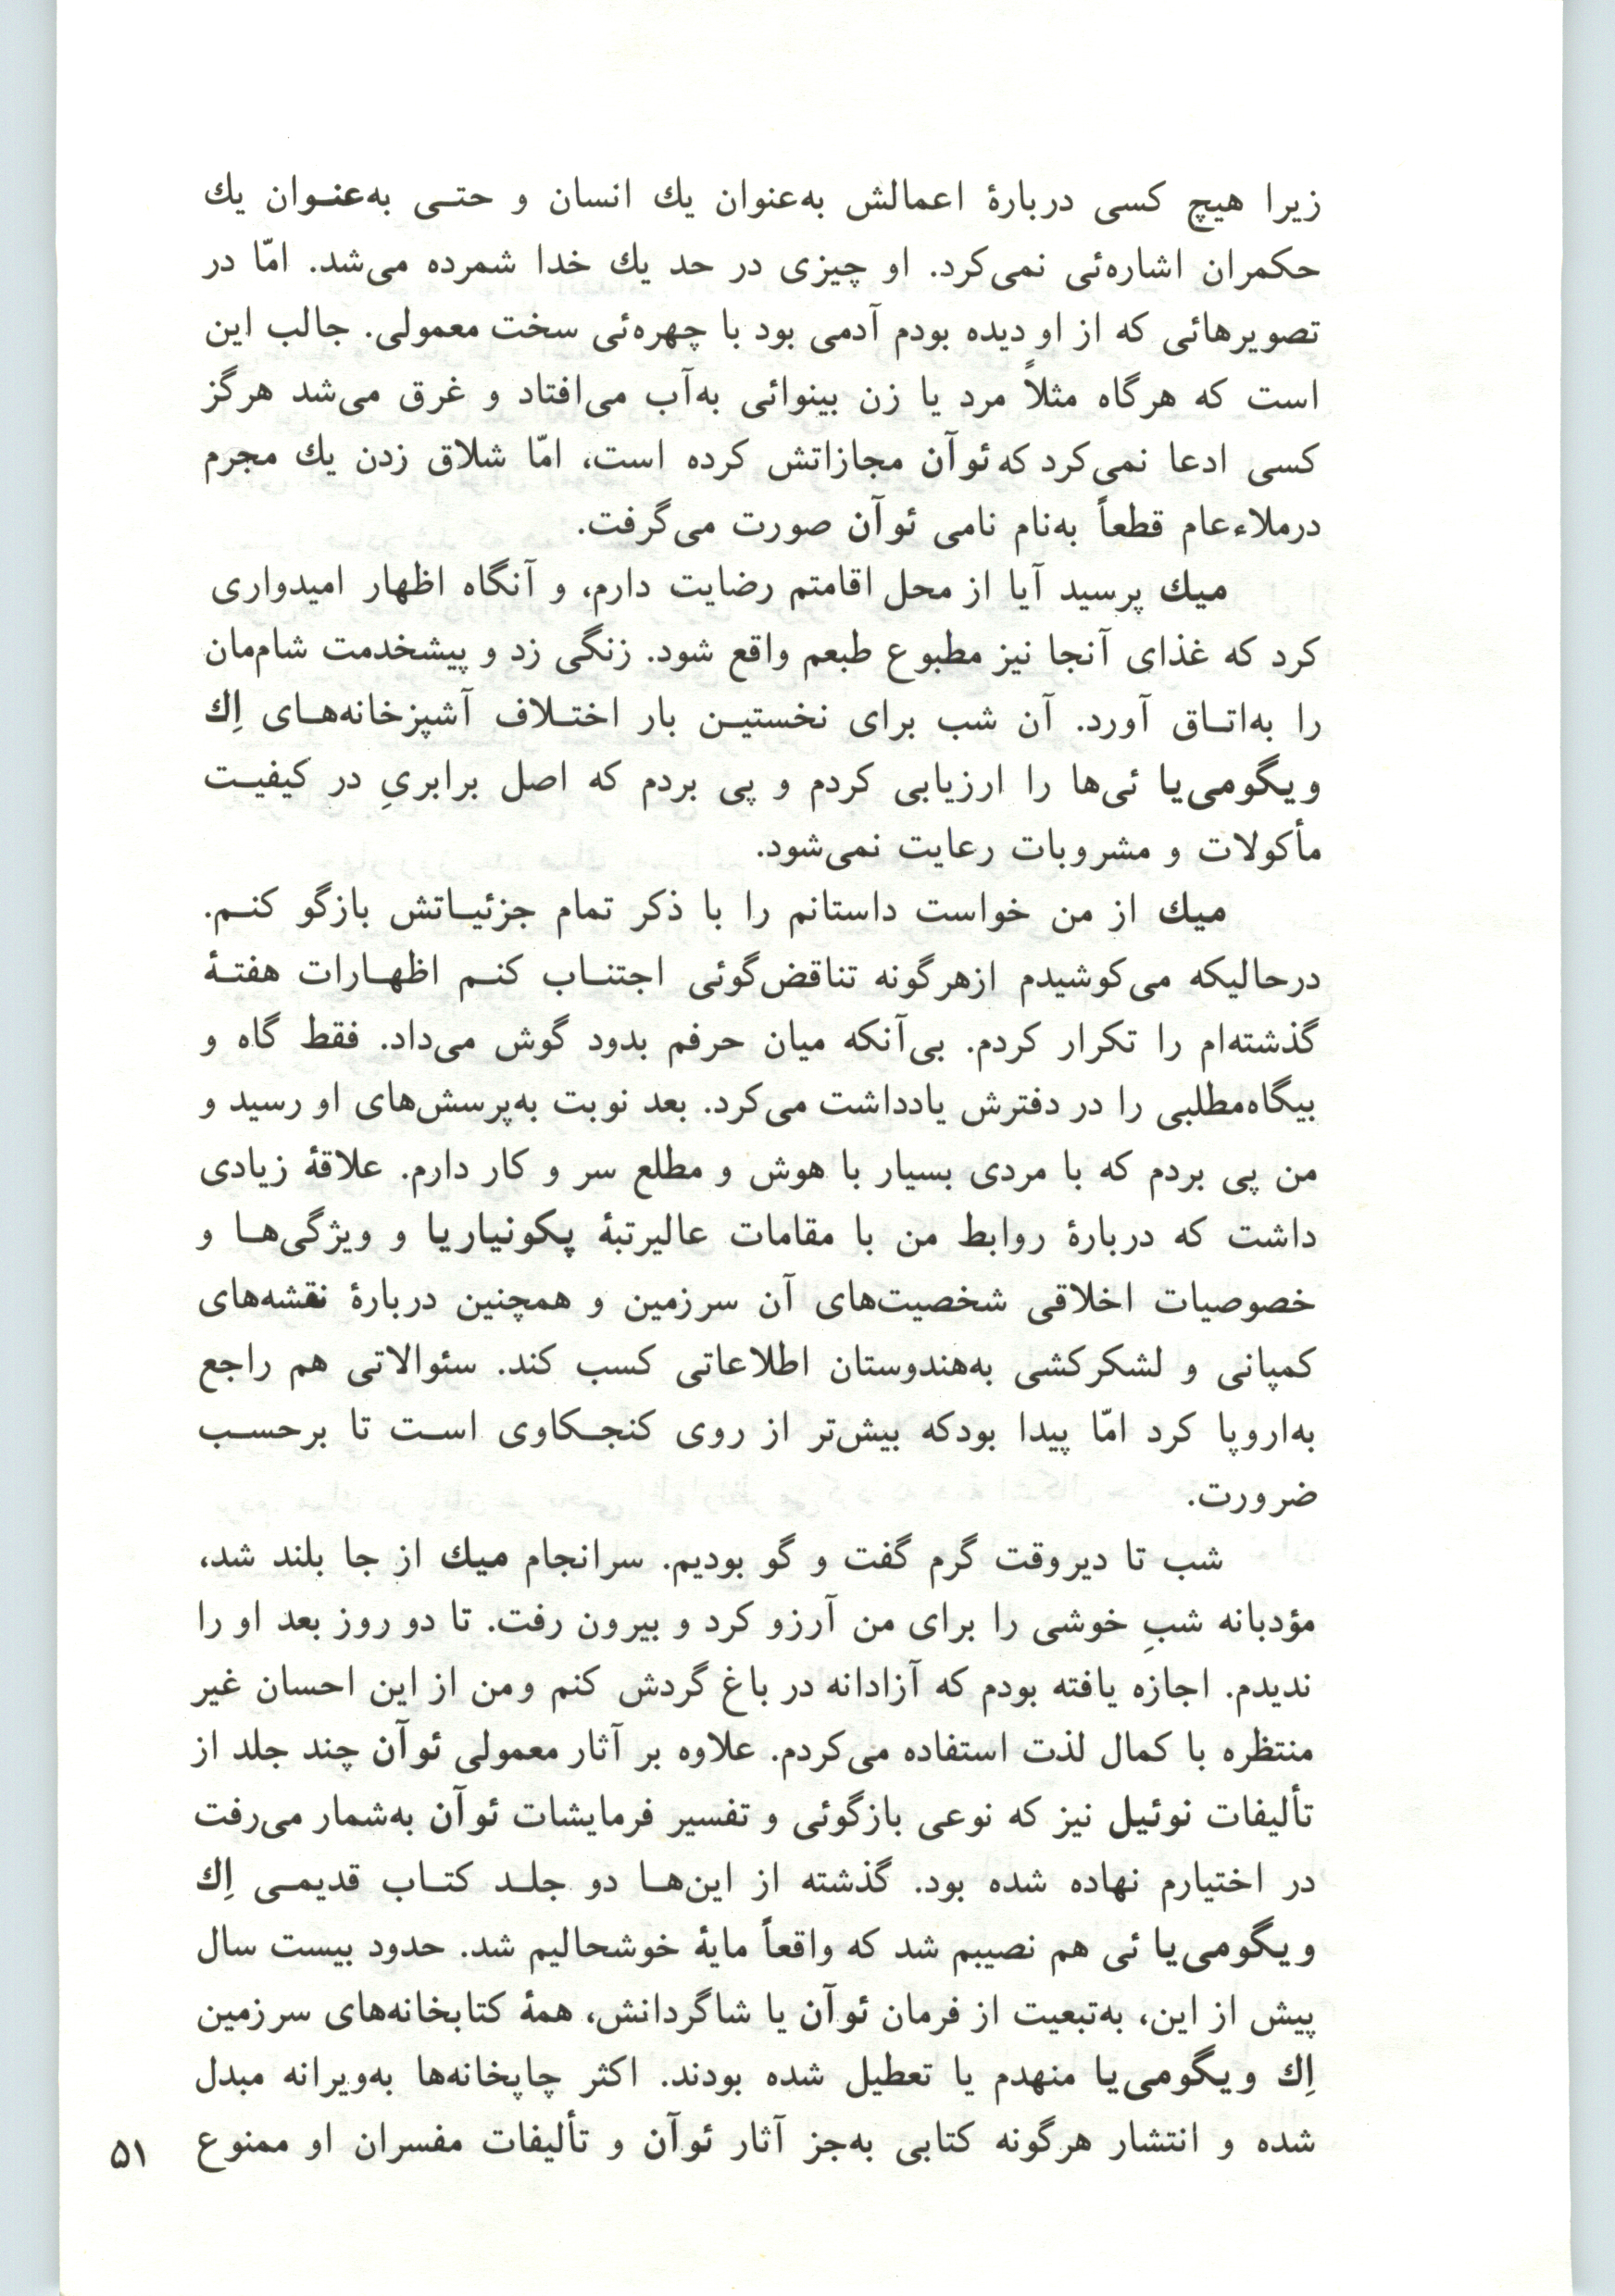 زیرا هیچ کسی دربارهٔ اعمالش به‌عنوان یك انسان و حتـی به‌عنـوان یك
حکمران اشاره‌ئی نمی‌کرد. او چیزی در حد یك خدا شمرده می‌شد. امّا در
تصویرهائی که از او دیده بودم آدمی بود با چهره‌ئی سخت معمولی. جالب این
است که هرگاه مثلاً مرد یا زن بینوائی به‌آب می‌افتاد و غرق می‌شد هرگز
کسی ادعا نمی‌کرد که ئوآن مجازاتش کرده است، امّا شلاق زدن یك مجرم
درملاءعام قطعاً به‌نام نامی ئوآن صورت می‌گرفت.
میك پرسید آیا از محل اقامتم رضایت دارم، و آنگاه اظهار امیدواری
کرد که غذای آنجا نیز مطبوع طبعم واقع شود. زنگی زد و پیشخدمت شام‌مان
را به‌اتـاق آورد. آن شب برای نخستیـن بار اختـلاف آشپزخانه‌هـای اِك
ویگومی‌یا ئی‌ها را ارزیابی کردم و پی بردم که اصل برابریِ در کیفیـت
مأکولات و مشروبات رعایت نمی‌شود.
میك از من خواست داستانم را با ذکر تمام جزئیـاتش بازگو کنـم.
درحالیکه می‌کوشیدم ازهرگونه تناقض‌گوئی اجتنـاب کنـم اظهـارات هفتـهٔ
گذشته‌ام را تکرار کردم. بی‌آنکه میان حرفم بدود گوش می‌داد. فقط گاه و
بیگاه‌مطلبی را در دفترش یادداشت می‌کرد. بعد نوبت به‌پرسش‌های او رسید و
من پی بردم که با مردی بسیار با هوش و مطلع سر و کار دارم. علاقهٔ زیادی
داشت که دربارهٔ روابط من با مقامات عالیرتبهٔ پکونیاریا و ویژگی‌هـا و
خصوصیات اخلاقی شخصیت‌های آن سرزمین و همچنین دربارهٔ نقشه‌های
کمپانی و لشکرکشی به‌هندوستان اطلاعاتی کسب کند. سئوالاتی هم راجع
به‌اروپا کرد امّا پیدا بودکه بیش‌تر از روی کنجـکاوی اسـت تا برحسـب
ضرورت.
شب تا دیروقت گرم گفت و گو بودیم. سرانجام میك از جا بلند شد،
مؤدبانه شبِ خوشی را برای من آرزو کرد و بیرون رفت. تا دو روز بعد او را
ندیدم. اجازه یافته بودم که آزادانه در باغ گردش کنم ومن از این احسان غیر
منتظره با کمال لذت استفاده می‌کردم. علاوه بر آثار معمولی ئوآن چند جلد از
تألیفات نوئیل نیز که نوعی بازگوئی و تفسیر فرمایشات ئوآن به‌شمار می‌رفت
در اختیارم نهاده شده بود. گذشته از این‌هـا دو جلـد کتـاب قدیمـی اِك
ویگومی‌یا ئی هم نصیبم شد که واقعاً مایهٔ خوشحالیم شد. حدود بیست سال
پیش از این، به‌تبعیت از فرمان ئوآن یا شاگردانش، همهٔ کتابخانه‌های سرزمین
اِك ویگومی‌یا منهدم یا تعطیل شده بودند. اکثر چاپخانه‌ها به‌ویرانه مبدل
شده و انتشار هرگونه کتابی به‌جز آثار ئوآن و تألیفات مفسران او ممنوع
۵۱